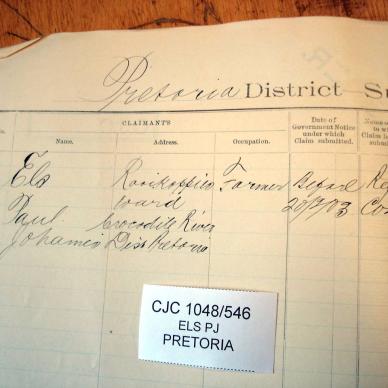 Pretoria District Su
CLAIMANTS
No. Name. Address. Occupation. Date of Government Notice under which Claim submitted.
Els Farmer Before
Paul ward 20/7/03 Co
Johannes Crocodile River
Dist Pretoria
CJC 1048/546
ELS PJ
PRETORIA